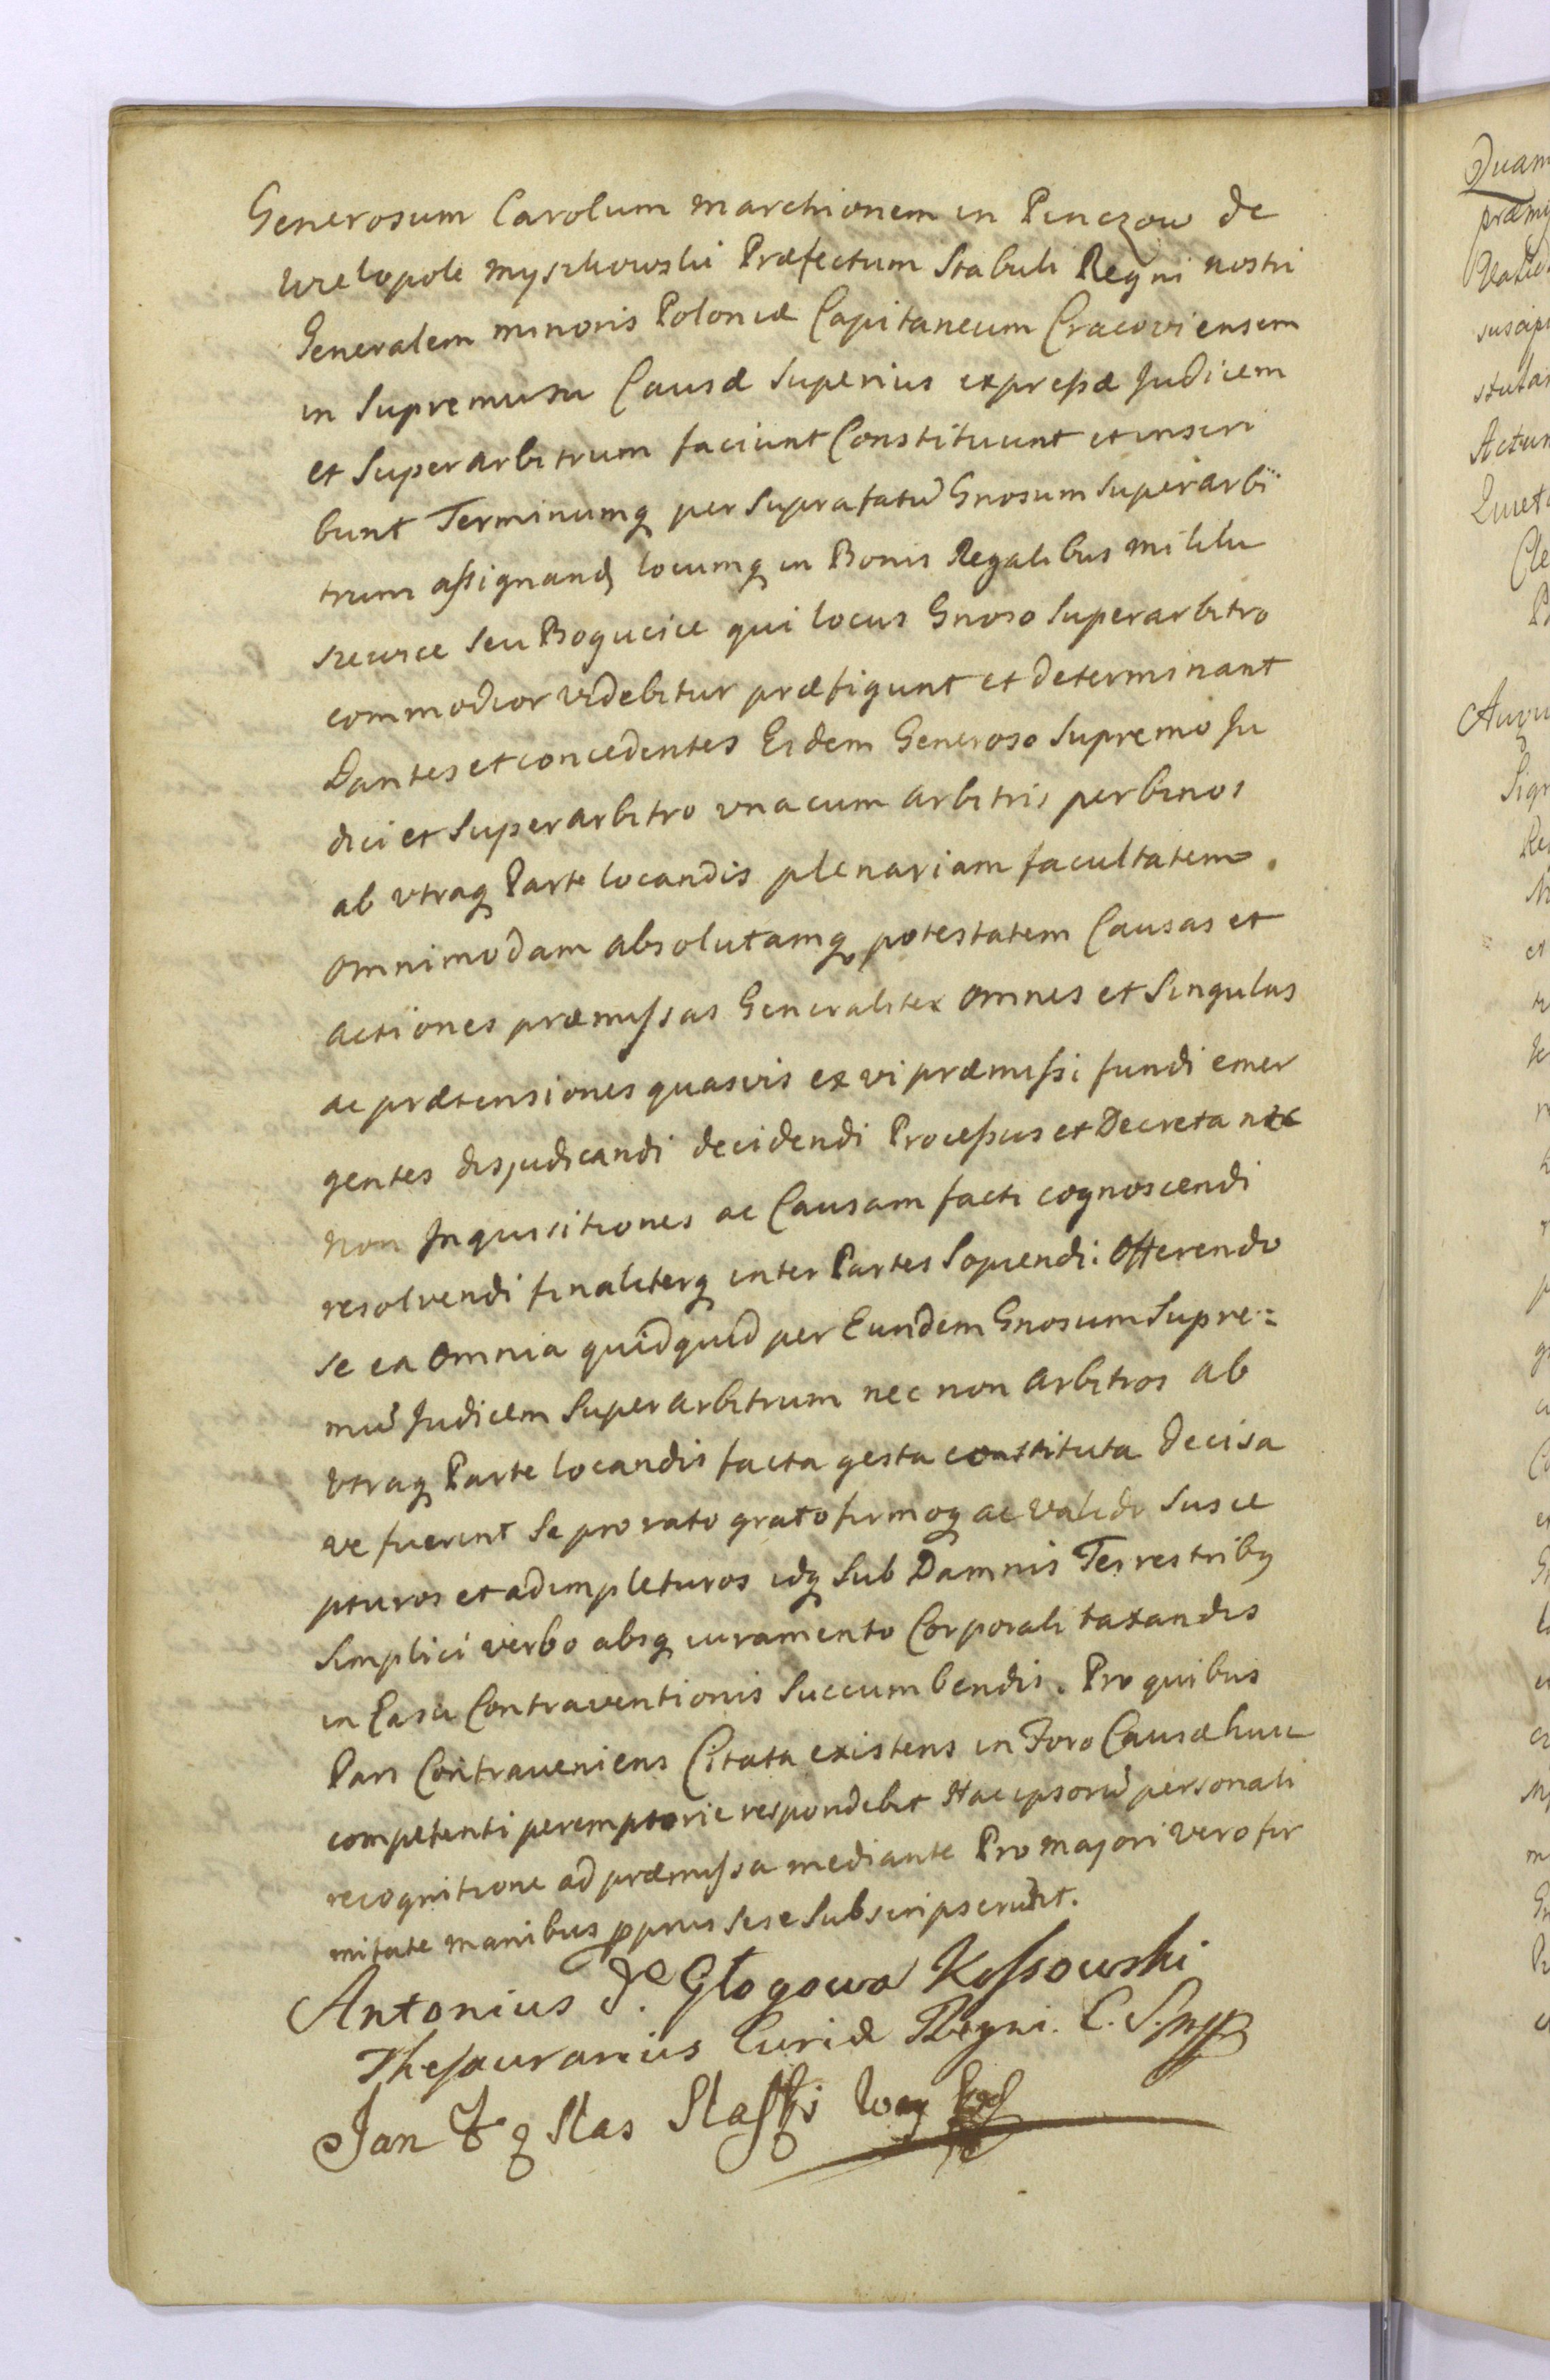 Generosum Carolum marchionem in Pinczow de
Wielopole Myszkowski Præfectum Stabuli Regni nostri
Generalem minoris Poloniæ Capitaneum Cracoviensem
in Supremum Causæ Superius expressæ Judicem
et Superarbitrum faciunt Constituunt et inscri
bunt Terminumq per Suprafatũ Gnosum Superarbi
trum assignand locumq in Bonis Regalibus
seu Bogucice qui locus Gnoso Superarbitro
commodior videbitur præfigunt et determinant
Dantes et concedentes Eidem Generoso Supremo Ju
dici et Superarbitro vna cum Arbitris per binos
ab vtraq Parte locandis plenariam facultatem
omnimodam absolutamq potestatem Causas et
actiones præmissas Generaliter omnes et Singulas
ac prætensiones quasvis ex vi præmissi fundi emer
gentes disjudicandi decidendi Processus et Decreta nec
non Inquisitiones ac Causam facti cognoscendi
resolvendi finaliterq inter Partes Sopiendi: Offerendo
se ea omnia quidquid per Eundem Gnosum Supre=
mũ Judicem Superarbitrum nec non arbitros ab
vtraq Parte locandis facta gesta constituta Decisa
ve fuerint Se pro rato grato firmoq ac valido Susce
pturos et adimpleturos idq Sub Damnis Terrestribq
Simplici verbo absq iuramento Corporali taxandis
in Casu Contraventionis Succumbendis. Pro quibus
Pars Contraveniens Citata existens in Foro Causæ huic
competenti peremptorie respondebit Hac ipsorũ personali
recognitione ad præmissa mediante Pro majori vero fir
mitate manibus pprijs sese Subscripserunt.
Antonius de Głogowa Kossowski
Thesaurarius Curiæ Regni. C. S. mpp
Jan